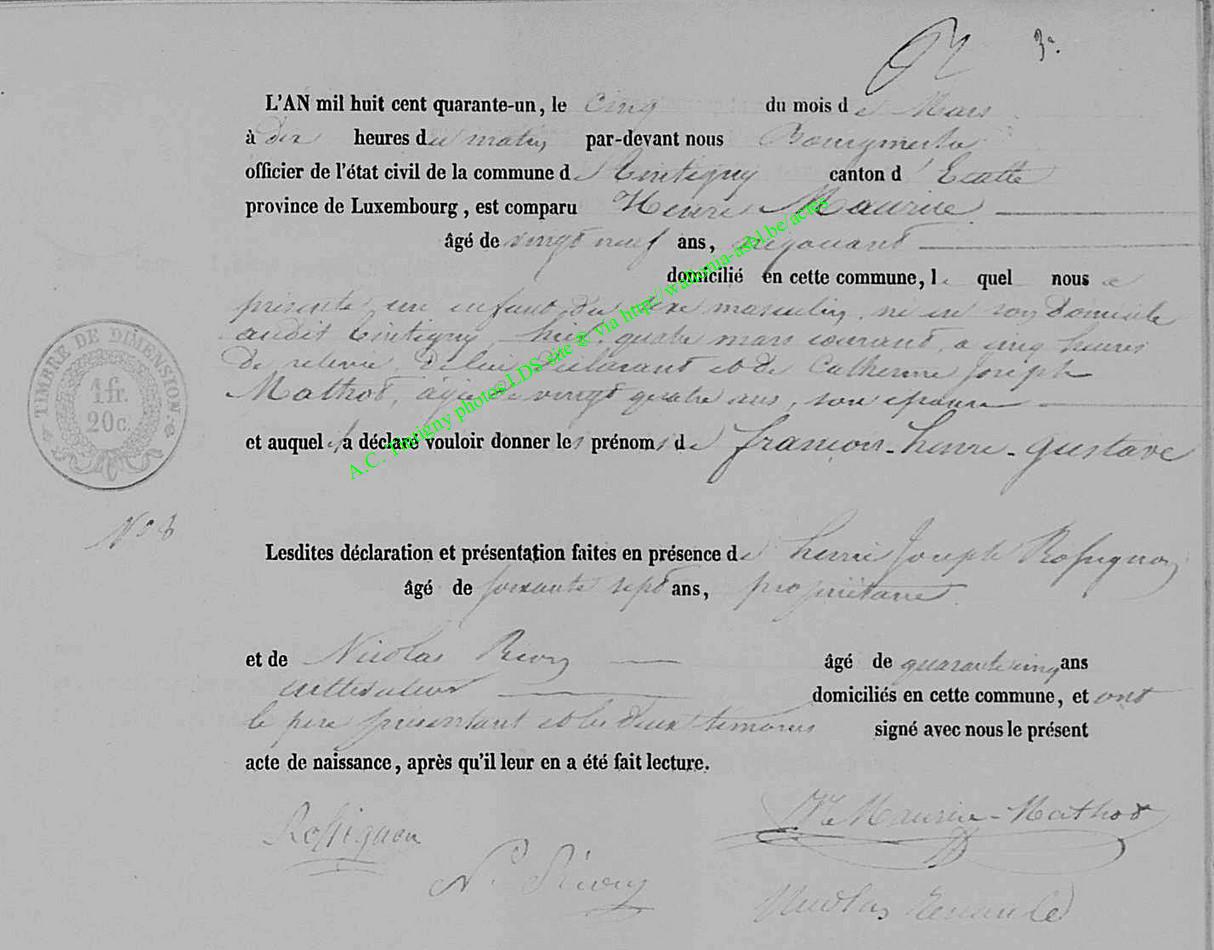 3e.
L'AN mil huit cent quarante-un, le cinq du mois de Mars
à dix heures du matin par-devant nous Bourgmestre
officier de l'état civil de la commune de Tintigny canton d'Etalle
province de Luxembourg, est comparu Henri Maurice
âgé de vingt neuf ans, négociant
domicilié en cette commune, le quel nous a
présenté un enfant du sexe masculin, né en son domicile
audit Tintigny, hier quatre mars courant, a cinq heures
de relevée, de lui déclarant et de Catherine Joseph
Mathot, agée de vingt quatre ans, son épouse
et auquel il a déclaré vouloir donner les prénoms de francois-henri-gustave
No 8
Lesdites déclaration et présentation faites en présence de henri Joseph Rossignon
âgé de soixante sept ans, propriétaire
et de Nicolas Rivry âgé de quarante cinq ans
cultivateur domiciliés en cette commune, et ont
le père présentant et les deux temoins signé avec nous le présent
acte de naissance, après qu'il leur en a été fait lecture.
Rossignon
Maurice-Mathot
N. Rivry
Nicolas
TIMBRE DE DIMENSION
1 fr.
20 c.
A.C. Tintigny photos LDS site © via http://wallonia-asbl.be/actes